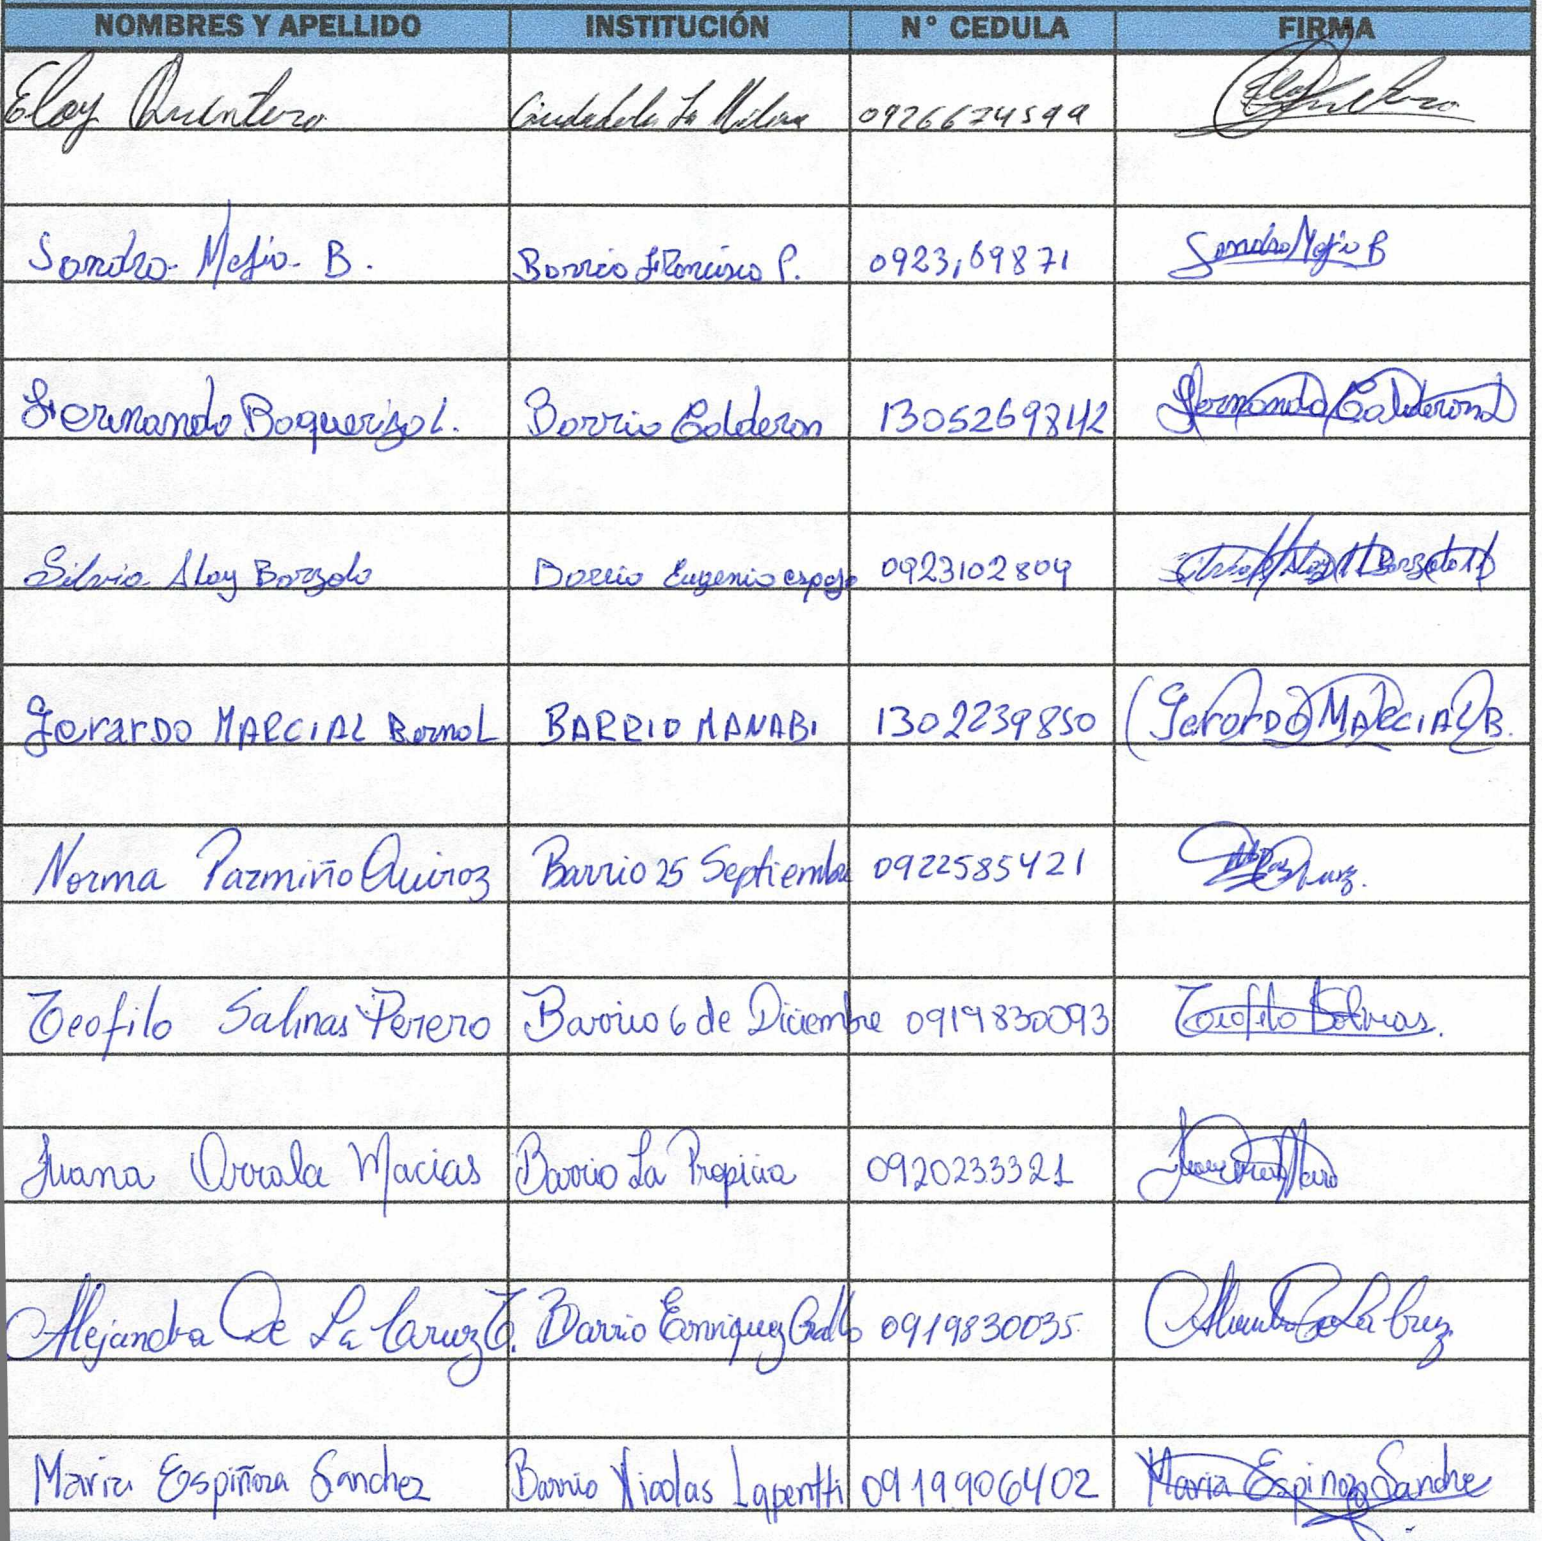 NOMBRES Y APELLIDO INSTITUCIÓN N° CEDULA FIRMA
Eloy Quintero Ciudadela La Milina 0926674599
Sandra Mejia B. Barrio Francisco P. 0923169871 Sandra Mejia B
Fernando Baquerizo L. Barrio Calderon 1305269842 Fernando Calderon
Silvia Alay Barzola Barrio Eugenio espejo 0923102809
Gerardo MARCIAL Bernal BARRIO MANABI 1302239850 Gerardo MARCIAL B.
Norma Parmiño Quiroz Barrio 25 Septiembre 0922585421
Teofilo Salinas Perero Barrio 6 de Diciembre 0919830093 Teofilo Salinas.
Juana Orrala Macias Barrio La Propicia 0920233321
Alejandra De La Cruz T. Barrio Enriquez Gallo 0919830035 De La Cruz
Maria Espiñoza Sanchez Barrio Nicolas Lapentti 0919906402 Maria Espinoza Sanche